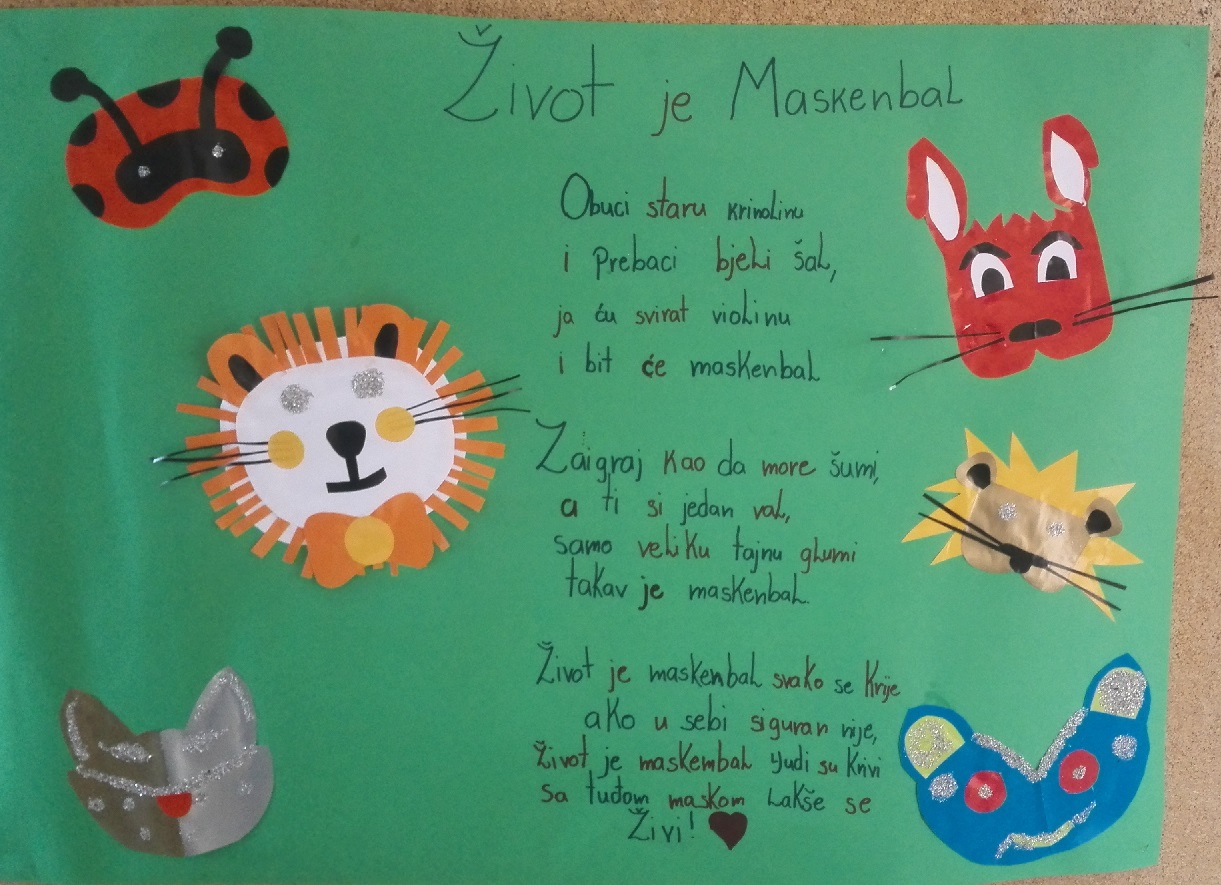 Život je Maskenbal
Obuci staru krinolinu
i prebaci bjeli šal,
ja ću svirat violinu
i bit će maskenbal
Zaigraj kao da more šumi,
a ti si jedan val,
samo veliku tajnu glumi
takav je maskenbal.
Život je maskenbal svako se krije
ako u sebi siguran nije,
život je maskembal ljudi su krivi
sa tuđom maskom lakše se
živi!